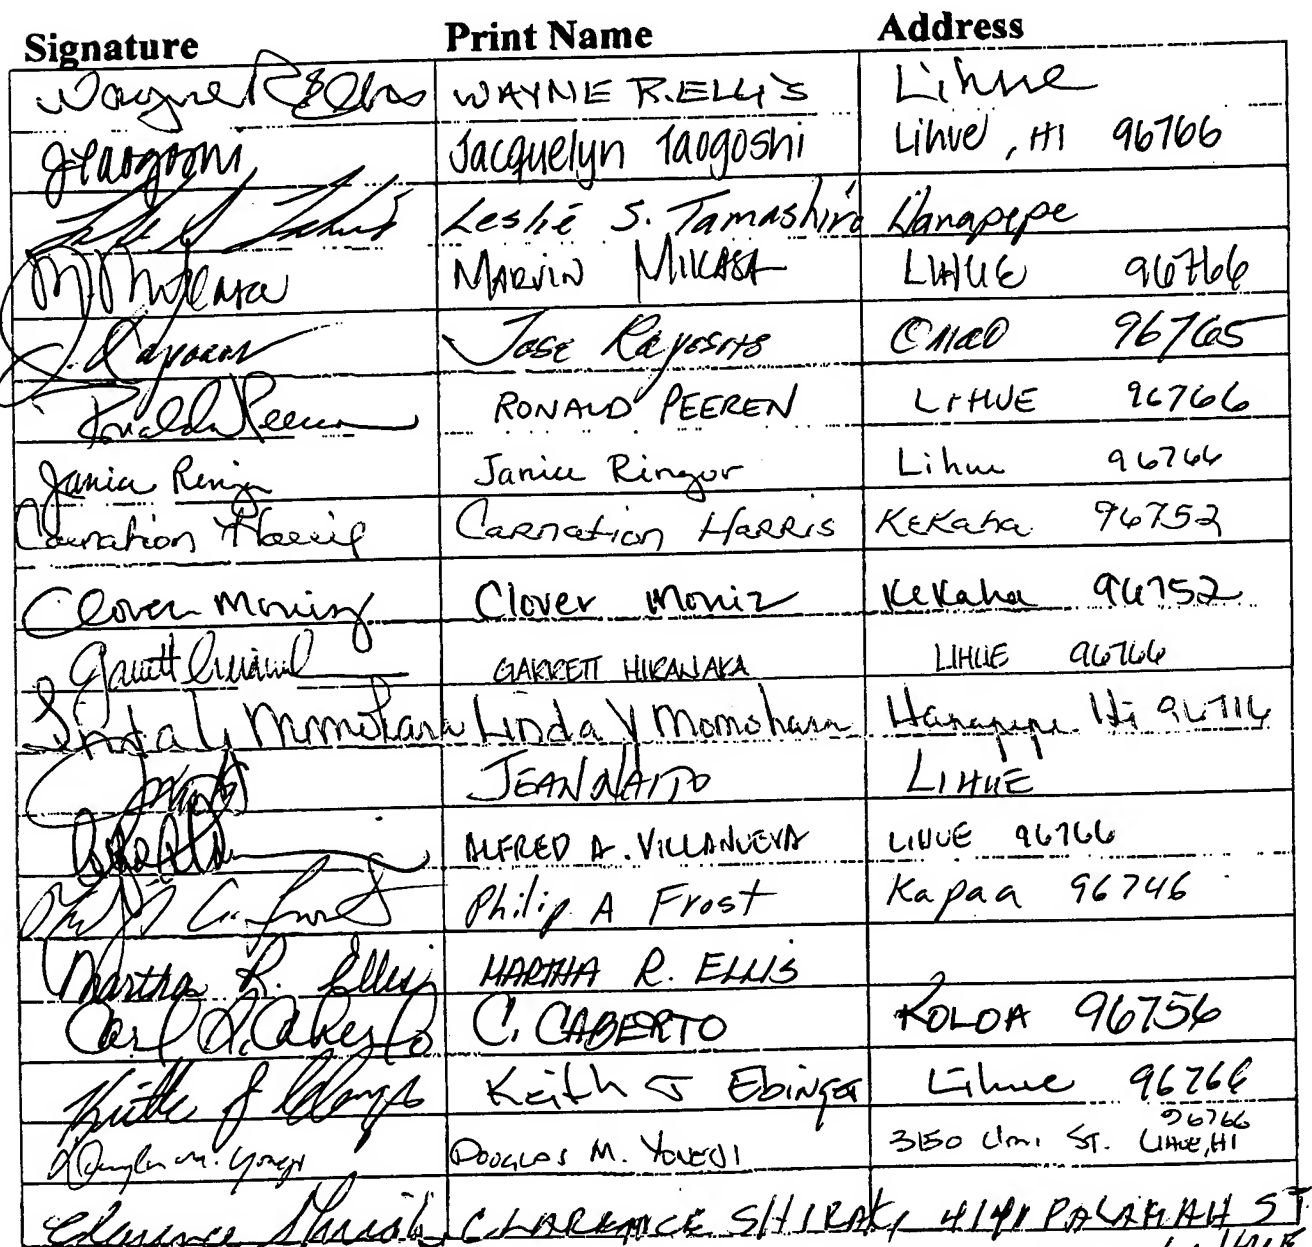 Signature Print Name Address
Wayne R Ellis WAYNE R. ELLIS Lihue
Jacquelyn Taogoshi Lihue, HI 96766
Leslie S. Tamashiro Hanapepe
M. Mikasa MARVIN MIKASA LIHUE 96766
J. Jose Omao 96765
Ronald Peeren RONALD PEEREN LIHUE 96766
Janice Ringor Janice Ringor Lihue 96766
Carnation Harris Carnation HARRIS KeKaha 96752
Clover Moniz Clover Moniz KeKaha 96752
Garrett GARRETT HIRANAKA LIHUE 96766
Linda Y Momohara Linda Y Momohara Hanapepe Hi 96716
JEAN NAITO LIHUE
ALFRED A. VILLANUEVA LIHUE 96766
Philip A Frost Kapaa 96746
Martha R. Ellis MARTHA R. ELLIS
Carl Caberto C. CABERTO KOLOA 96756
Keith J Keith J Ebinger Lihue 96766
Douglas M. Yoneji DOUGLAS M. YONEJI 3150 ST. LIHUE, HI 96766
Clarence Shiraki CLARENCE SHIRAKI 4141 ST.
Lihue